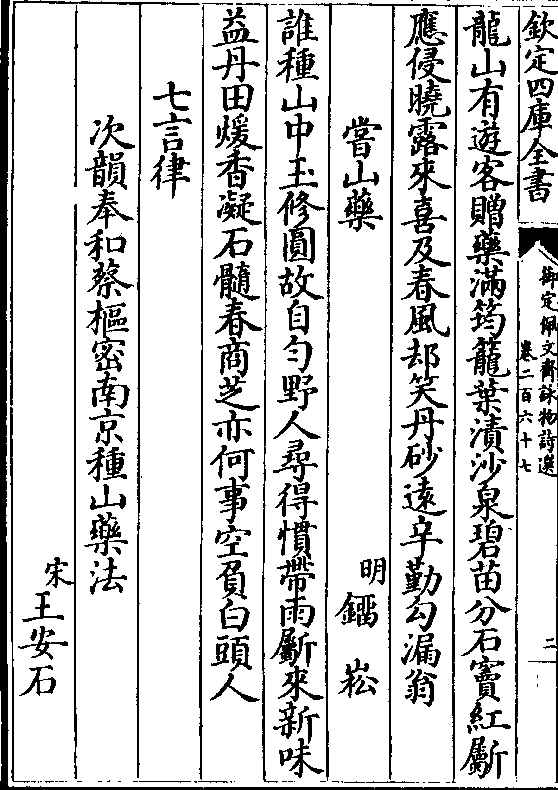 欽定四庫全書
御定佩文齋詠物詩選
卷二百六十七
二
龍山有遊客贈藥滿筠籠葉漬沙泉碧苗分石竇紅斸
應侵曉露來喜及春風却笑丹砂遠辛勤勾漏翁
嘗山藥 明 鎦崧
誰種山中玉修圓故自勻野人尋得慣帶雨斸來新味
益丹田煖香凝石髓春商芝亦何事空負白頭人
七言律
次韻奉和蔡樞密南京種山藥法
宋 王安石